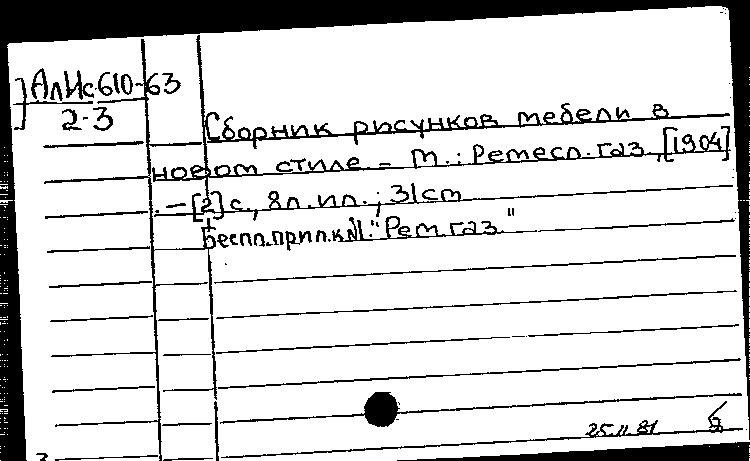 АлИс610-63
2-3
Сборник рисунков мебели в
новом стиле - М.: Ремесл. газ., [1904]
. - [2] с., 8л. ил.; 31 cm
Беспл. прил. к №1. "Рем. газ."
25.11.81